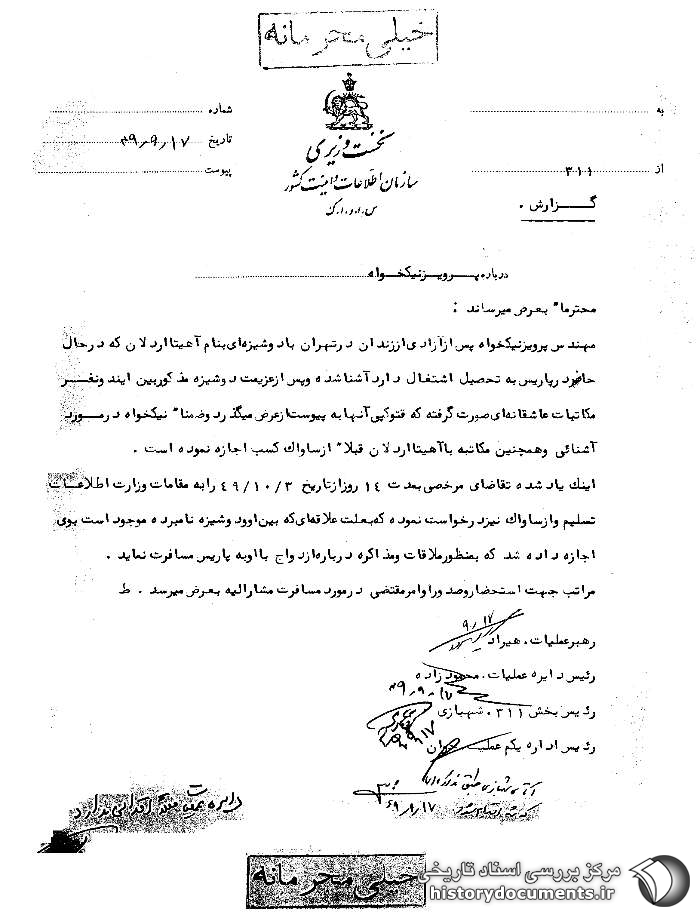 خیلی محرمانه
به
شماره
تاریخ ۴۹٫۹٫۱۷
پیوست
نخست وزیری
سازمان اطلاعات و امنیت کشور
س.ا.و.ا.ک
از ۳۱۱
گزارش .
درباره پرویز نیکخواه
محترما" بعرض میرساند :
مهندس پرویز نیکخواه پس از آزادی از زندان در تهران با دوشیزه‌ای بنام آهیتا اردلان که در حال
حاضر در پاریس به تحصیل اشتغال دارد آشنا شده و پس از عزیمت دوشیزه مذکور بین ایند و نفـــر
مکاتبات عاشقانه‌ای صورت گرفته که فتوکپی آنها به پیوست از عرض میگذرد وضمنا" نیکخواه در مـورد
آشنائی وهمچنین مکاتبه با آهیتا اردلان قبلا" از ساواک کسب اجازه نموده است .
اینک یاد شده تقاضای مرخصی بمدت ۱۴ روز از تاریخ ۴۹/۱۰/۳ را به مقامات وزارت اطلاعـات
تسلیم و از ساواک نیز درخواست نموده که بعلت علاقه‌ای که بین او و دوشیزه نامبرده موجود است بوی
اجازه داده شد که بمنظور ملاقات ومذاکره درباره ازدواج با او به پاریس مسافرت نماید .
مراتب جهت استحضار وصدور اوامر مقتضی در مورد مسافرت مشارالیه بعرض میرسد . ط
رهبر عملیات . هیراد ۹٫۱۷
رئیس دایره عملیات . محمودزاده
۴۹٫۹٫۱۷
رئیس بخش ۳۱۱ . شهبازی
رئیس اداره یکم عملیات
خیلی محرمانه
مرکز بررسی اسناد تاریخی
historydocuments.ir